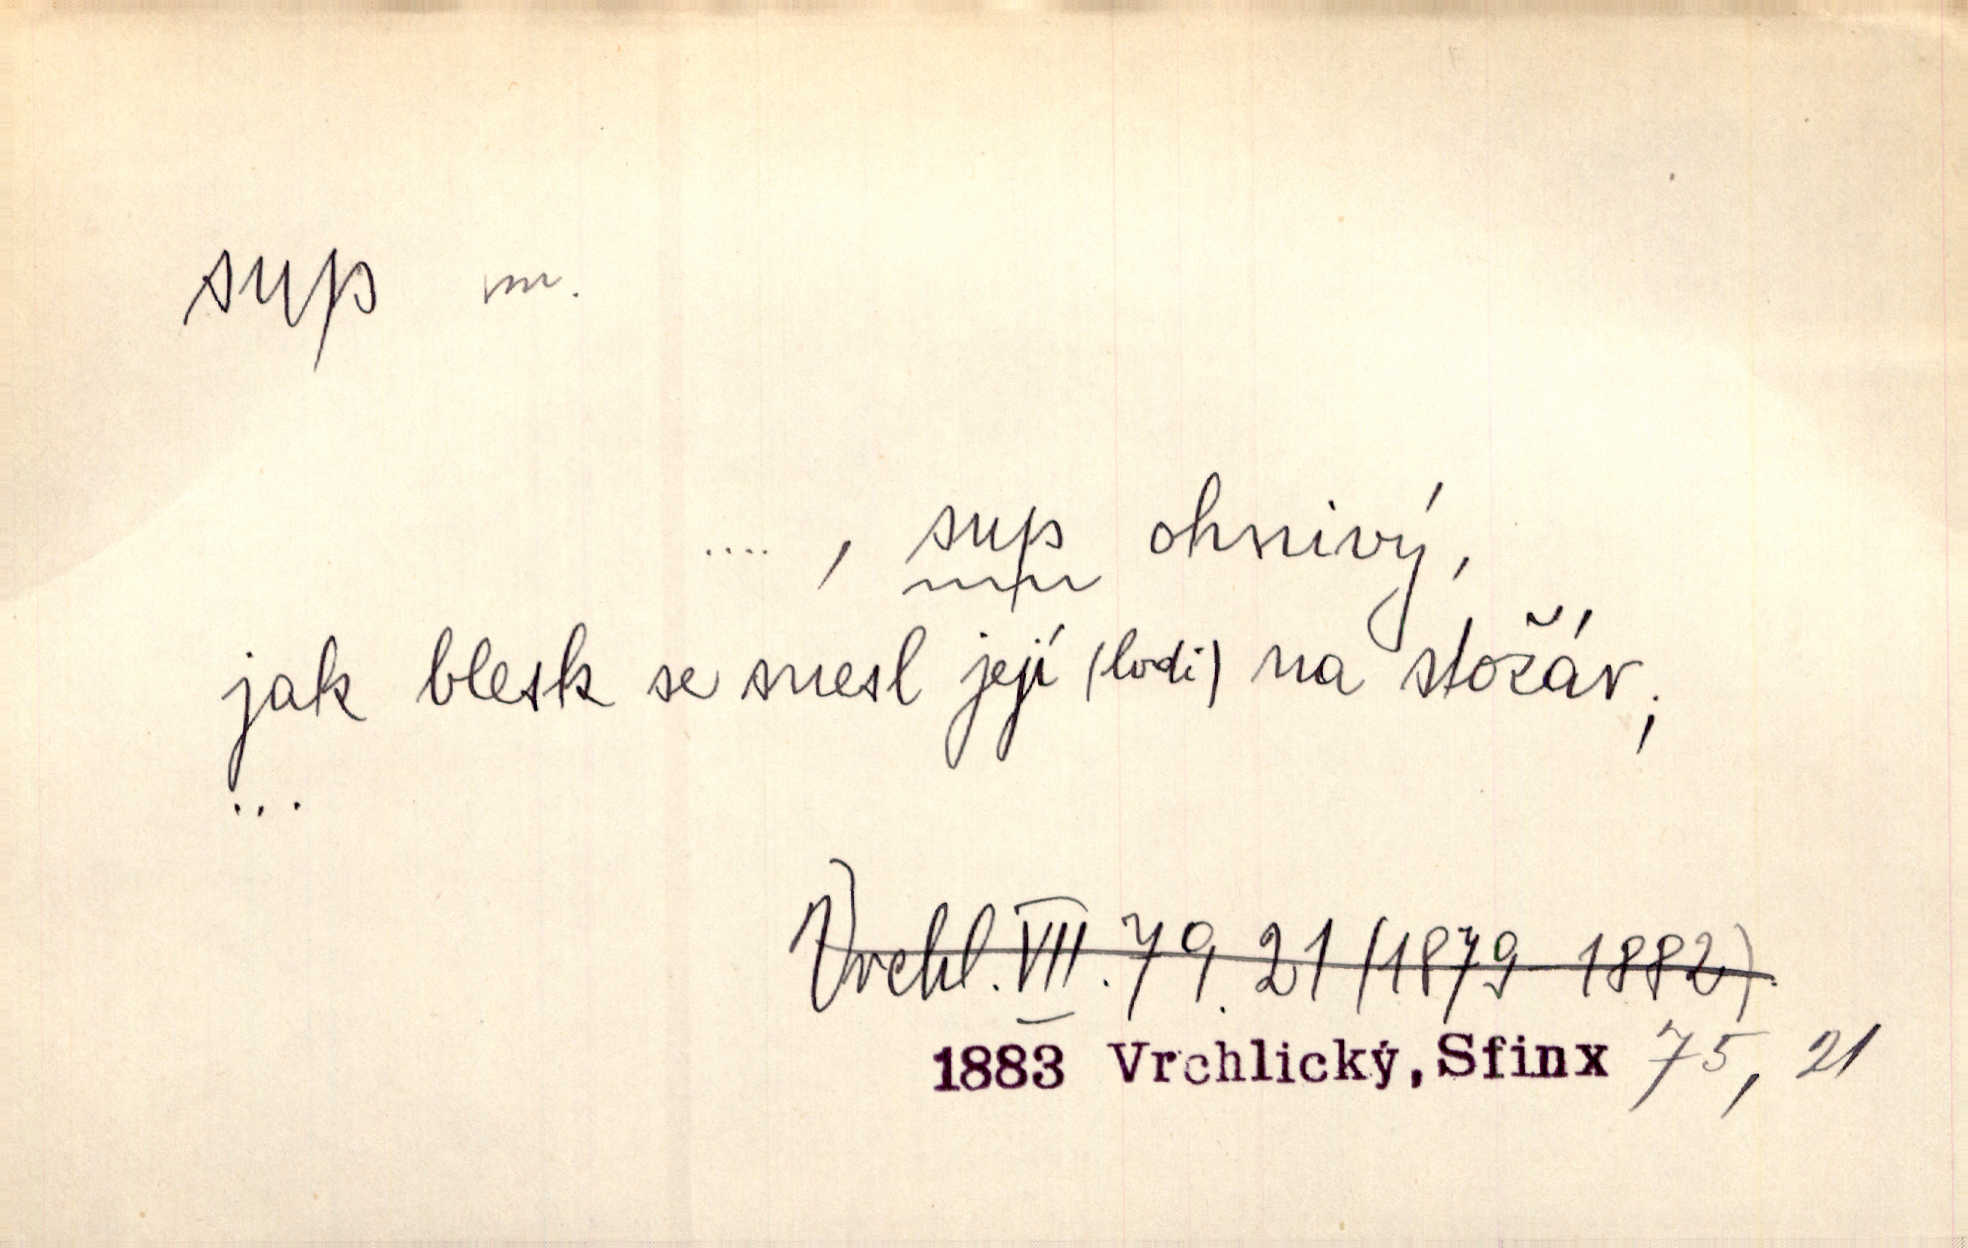 sup m.
...., sup ohnivý,
jak blesk se snesl její (lodi) na stožár;
...
Vrchl. VII. 79, 21 (1879–1882)
1883 Vrchlický, Sfinx 75, 21